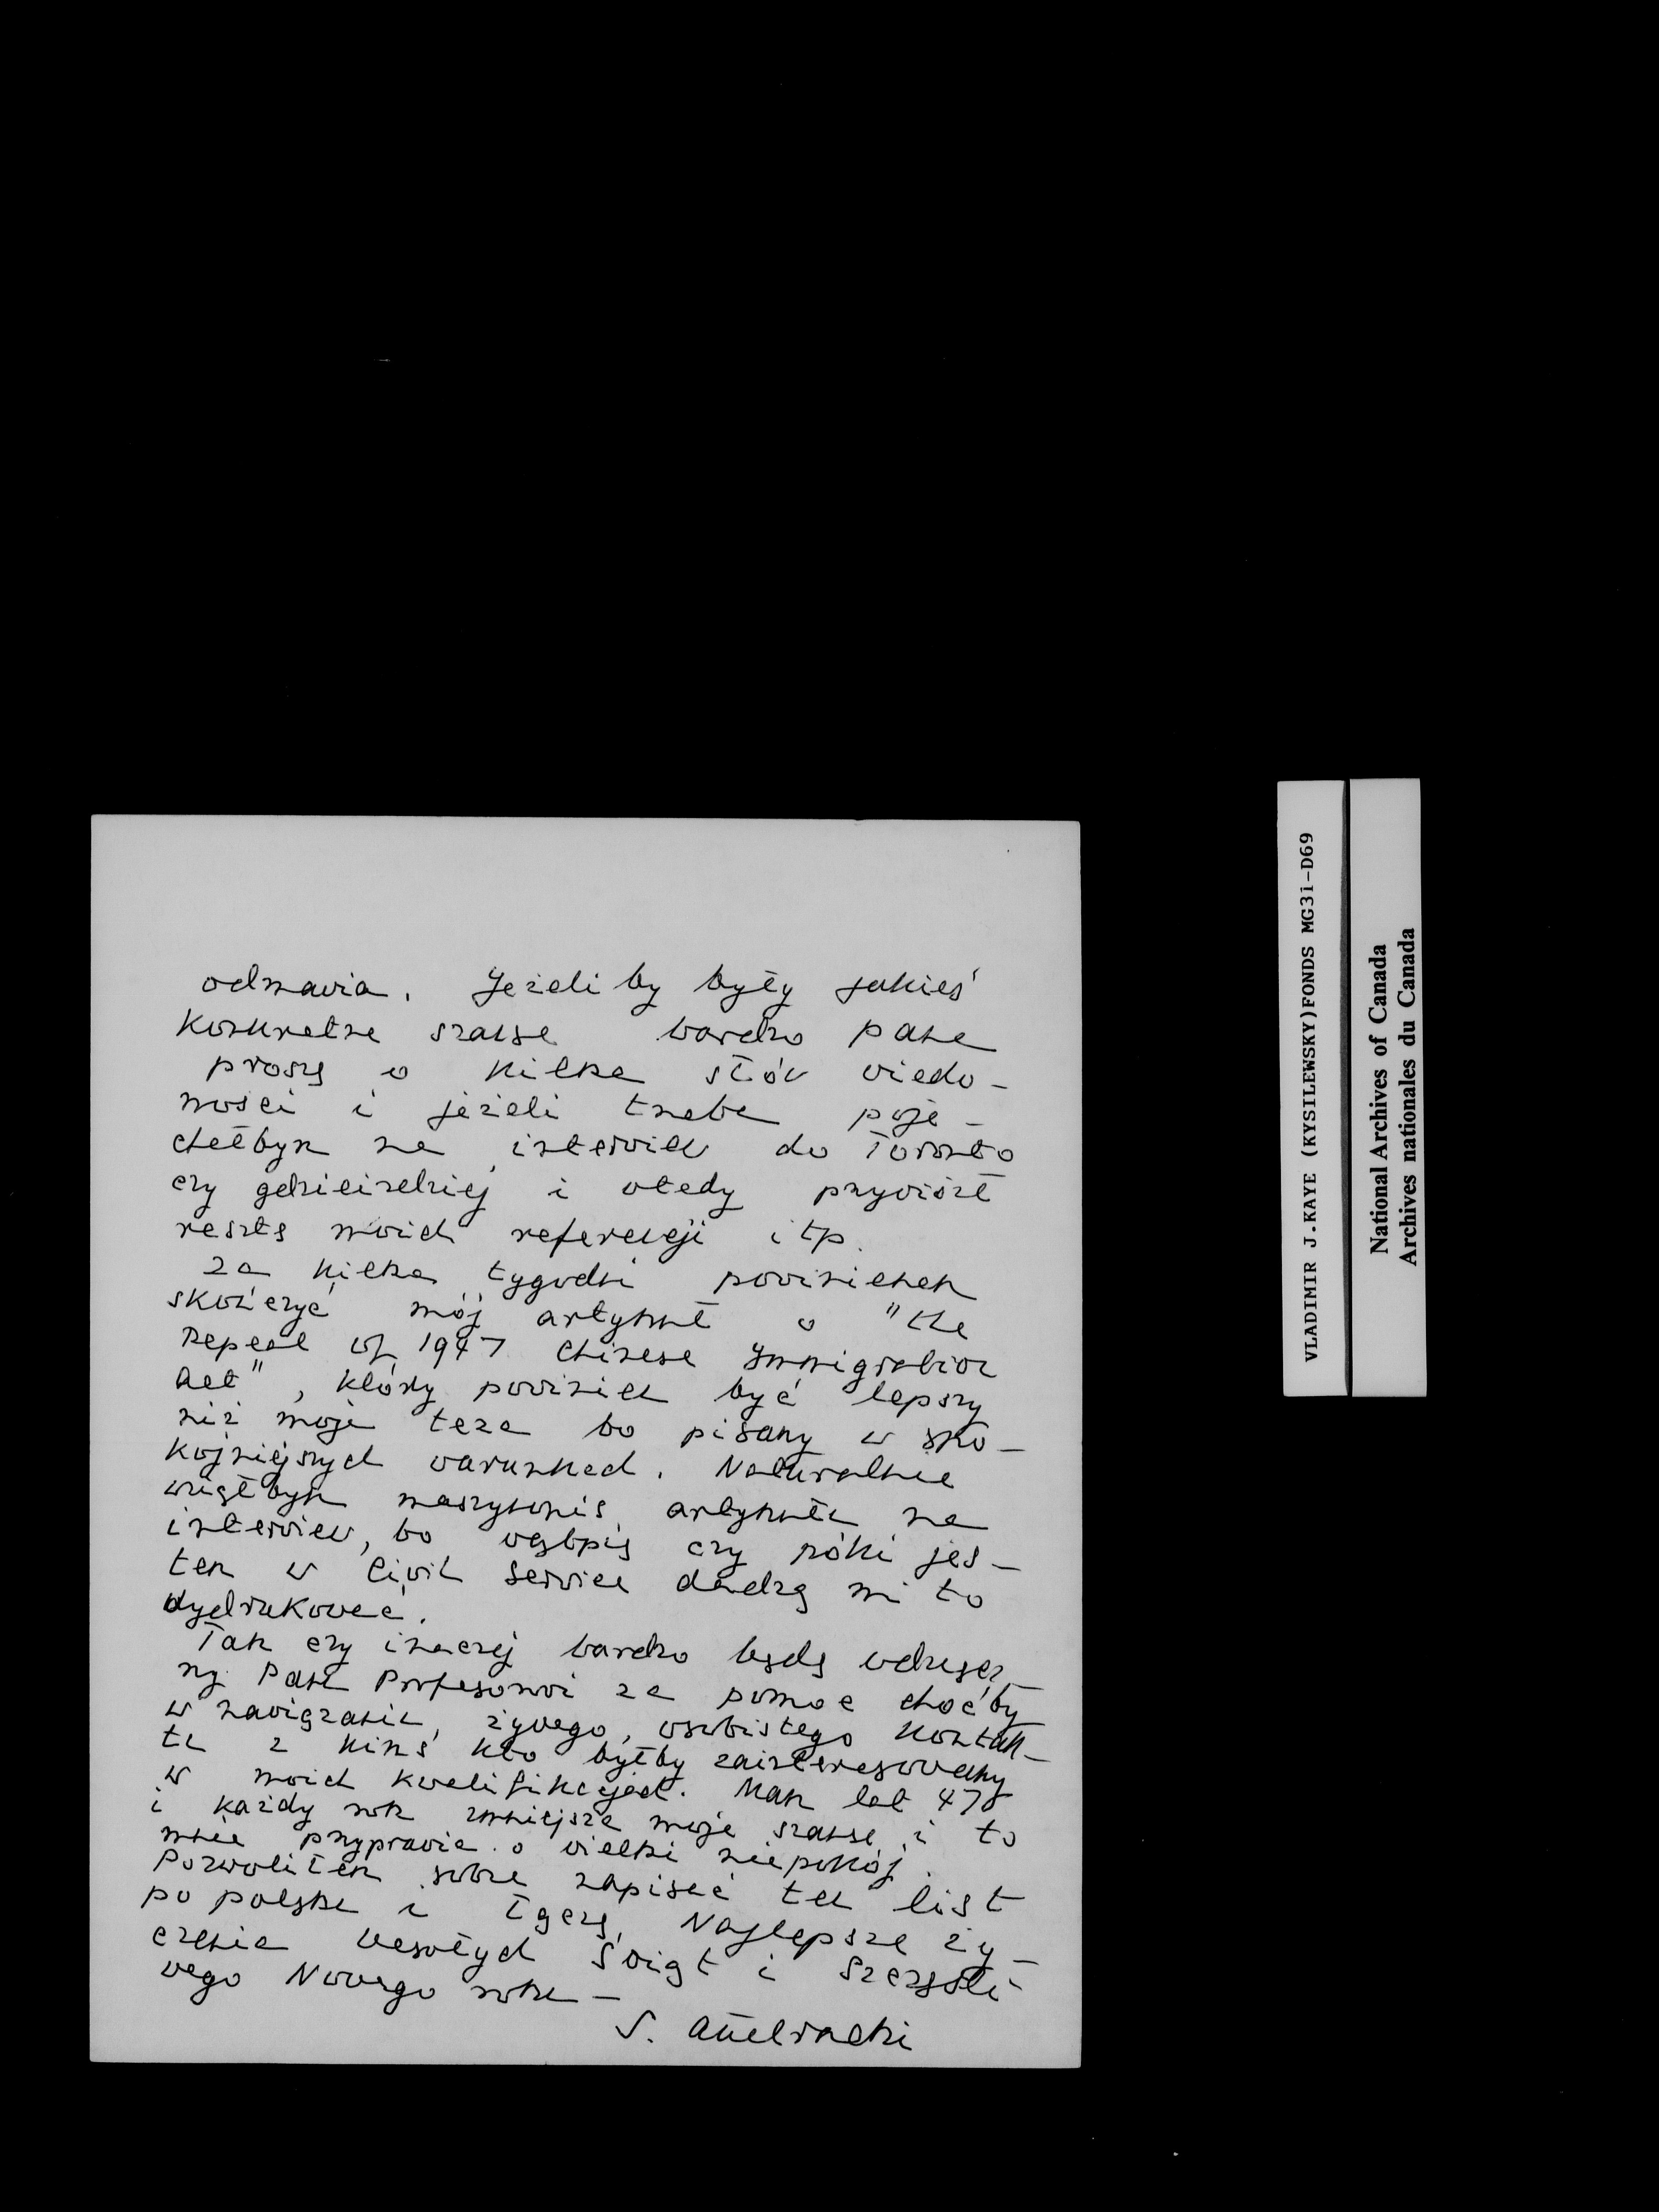 odmawia. Jeżeli by były jakieś
konkretne szanse bardzo pana
proszę o kilka słów wiado-
mości i jeżeli trzeba poje-
chałbym na interview do Toronto
czy gdzieindziej i wtedy przywiózł
resztę moich referencji itp.
za kilka tygodni powinienem
skończyć mój artykuł o "the
Repeal of 1947 Chinese Immigration
Act", który powinien być lepszy
niż moja teza bo pisany w spo-
kojniejszych warunkach. Naturalnie
wziąłbym maszynopis artykułu na
interview, bo wątpię czy póki jes-
tem w Civil Service dadzą mi to
wydrukować.
Tak czy inaczej bardzo będę wdzięcz-
ny Panu Profesorowi za pomoc choćby
w nawiązaniu żywego, osobistego kontak-
tu z kimś kto byłby zainteresowany
w moich kwalifikacjach. Mam lat 47
i każdy rok zmniejsza moje szanse i to
mnie przyprawia o wielki niepokój.
Pozwoliłem sobie napisać ten list
po polsku i łączę Najlepsze ży-
czenia Wesołych Świąt i Szczęśli-
wego Nowego roku –
S.
VLADIMIR J.KAYE (KYSILEWSKY)FONDS MG31-D69
National Archives of Canada
Archives nationales du Canada